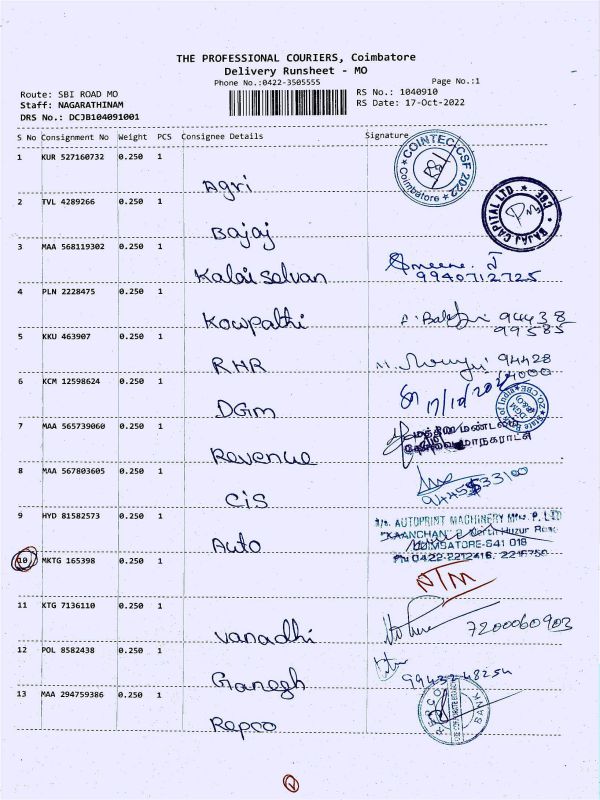 THE PROFESSIONAL COURIERS, Coimbatore
Delivery Runsheet - MO
Phone No.:0422-3505555
Page No.:1
Route: SBI ROAD MO
RS No.: 1040910
Staff: NAGARATHINAM
RS Date: 17-Oct-2022
DRS No.: DCJB104091001
S No Consignment No Weight PCS Consignee Details Signature
COINTEC-CSF 2022 Coimbatore
1 KUR 527160732 0.250 1
Agri
BAJAJ CAPITAL LTD. 383
2 TVL 4289266 0.250 1
Bajaj
3 MAA 568119302 0.250 1
Kalai Selvan
9940712725
4 PLN 2228475 0.250 1
Kowpathi
94438
99585
5 KKU 463907 0.250 1
RHR
94428
6 KCM 12598624 0.250 1
DGM
17/10/2022
State Bank of India DGM (B&O) ZO, CBE
7 MAA 565739060 0.250 1
மத்திய மண்டலம்
கோவை மாநகராட்சி
Revenue
8 MAA 567803605 0.250 1
CiS
9445533100
9 HYD 81582573 0.250 1
M/s. AUTOPRINT MACHINERY MFRS. P. LTD
"KAANCHAN" 9, North Huzur Road
COIMBATORE-641 018
Auto
10 MKTG 165398 0.250 1
NTM
11 KTG 7136110 0.250 1
Vanadhi
7200060903
12 POL 8582438 0.250 1
Ganegh
9943248254
13 MAA 294759386 0.250 1
Repco
REPCO BANK